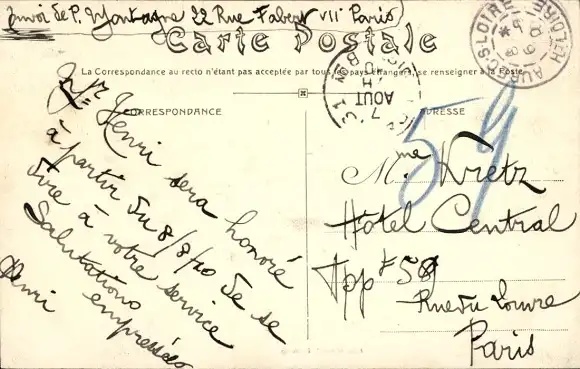 Envoi de P. Montagne 22 Rue Fabert VIIe Paris
Carte Postale
La Correspondance au recto n'étant pas acceptée par tous les pays étrangers, se renseigner à la Poste
CORRESPONDANCE
ADRESSE
Henri sera honoré
à partir du 8/8/10 de se
dire à votre service
Salutations
empressées
Henri
59
Mme Kretz
Hôtel Central
Appt 59
Rue du Louvre
Paris
7
AOUT
31
LOIRE